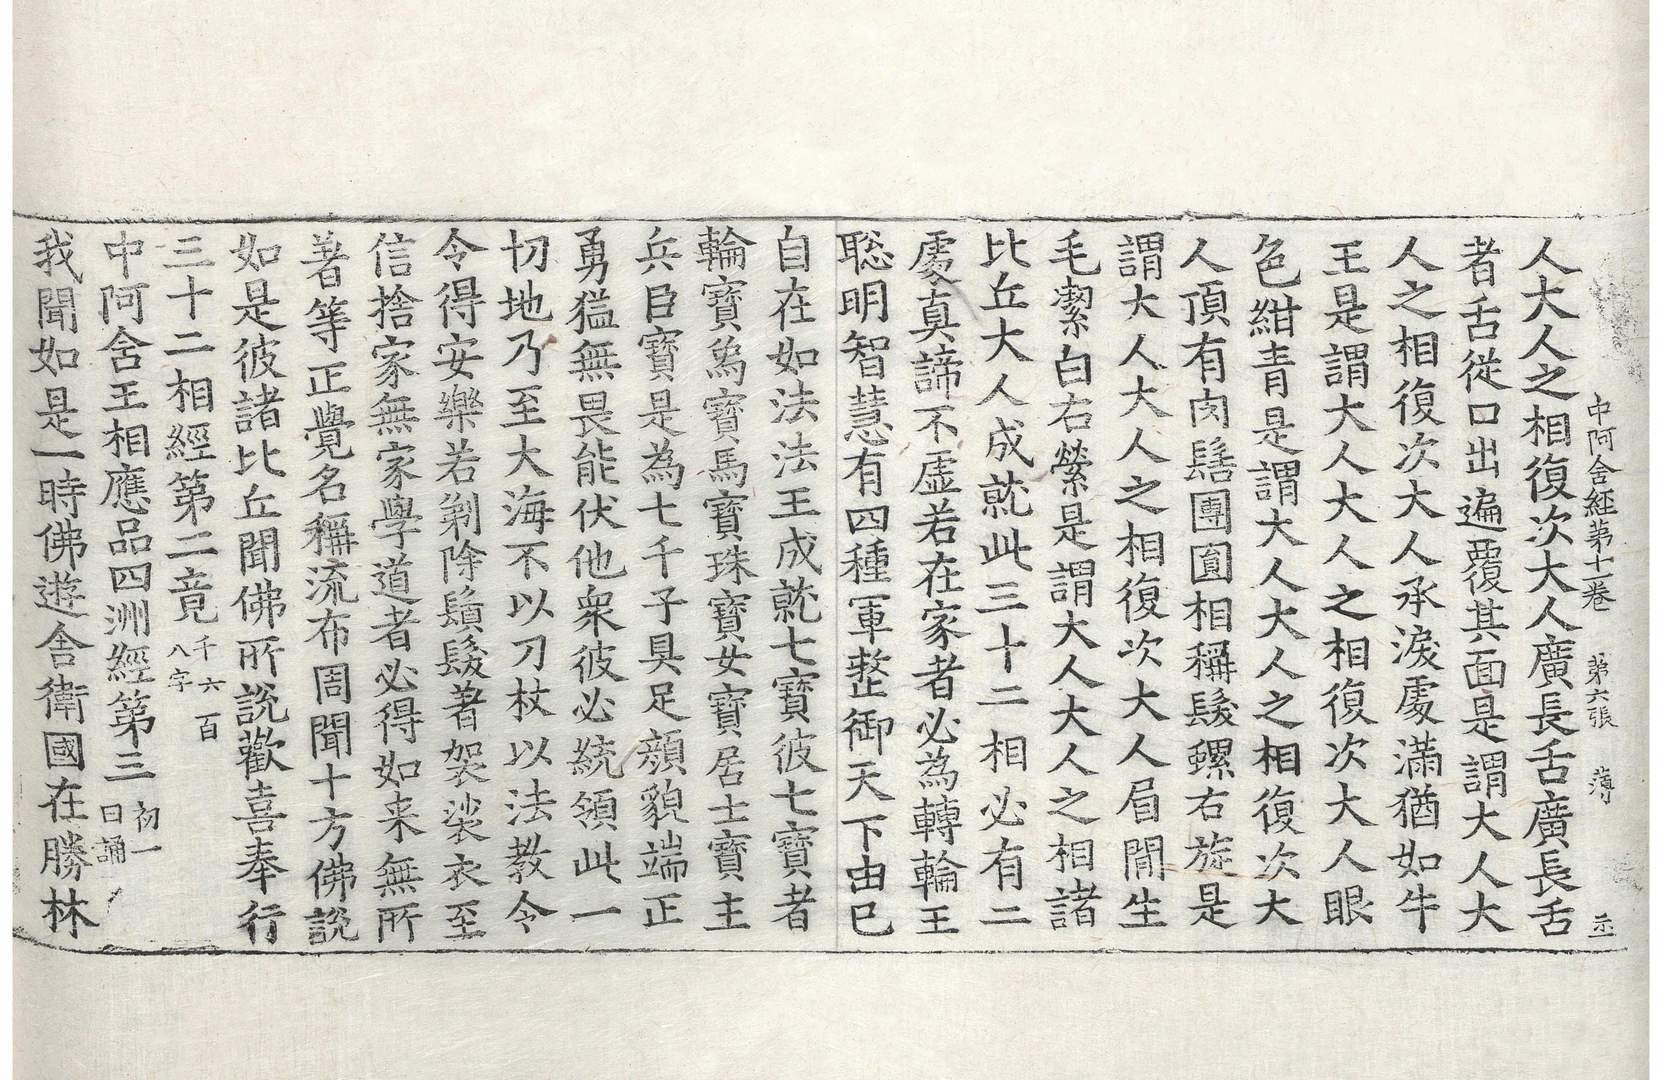 中阿含經第十一卷　第六張　薄　示
人大人之相復次大人廣長舌廣長舌
者舌從口出遍覆其面是謂大人大
人之相復次大人承淚處滿猶如牛
王是謂大人大人之相復次大人眼
色紺青是謂大人大人之相復次大
人頂有肉髻團圓相稱髮螺右旋是
謂大人大人之相復次大人眉間生
毛潔白右縈是謂大人大人之相諸
比丘大人成就此三十二相必有二
處真諦不虛若在家者必為轉輪王
聡明智慧有四種軍整御天下由己
自在如法法王成就七寶彼七寶者
輪寶爲寶馬寶珠寶女寶居士寶主
兵臣寶是為七千子具足顔貌端正
勇猛無畏能伏他衆彼必統領此一
切地乃至大海不以刀杖以法教令
令得安樂若剃除鬚髮著袈裟衣至
信捨家無家學道者必得如来無所
著等正覺名稱流布周聞十方佛説
如是彼諸比丘聞佛所説歡喜奉行
三十二相經第二竟　千六百八字
中阿含王相應品四洲經第三　初一日誦
我聞如是一時佛遊舍衛國在勝林